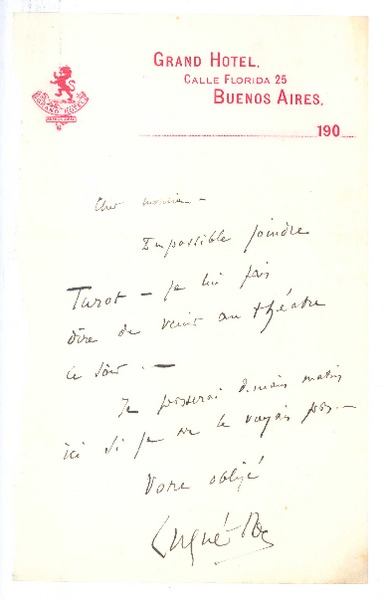 GRAND HOTEL
GRAND HOTEL.
CALLE FLORIDA 25
BUENOS AIRES.
190
Cher monsieur -
Impossible joindre
Turot - je lui fais
dire de venir au théâtre
ce soir. -
Je passerai demain matin
ici si je ne le voyais pas. -
Votre obligé
Lugné-Poe